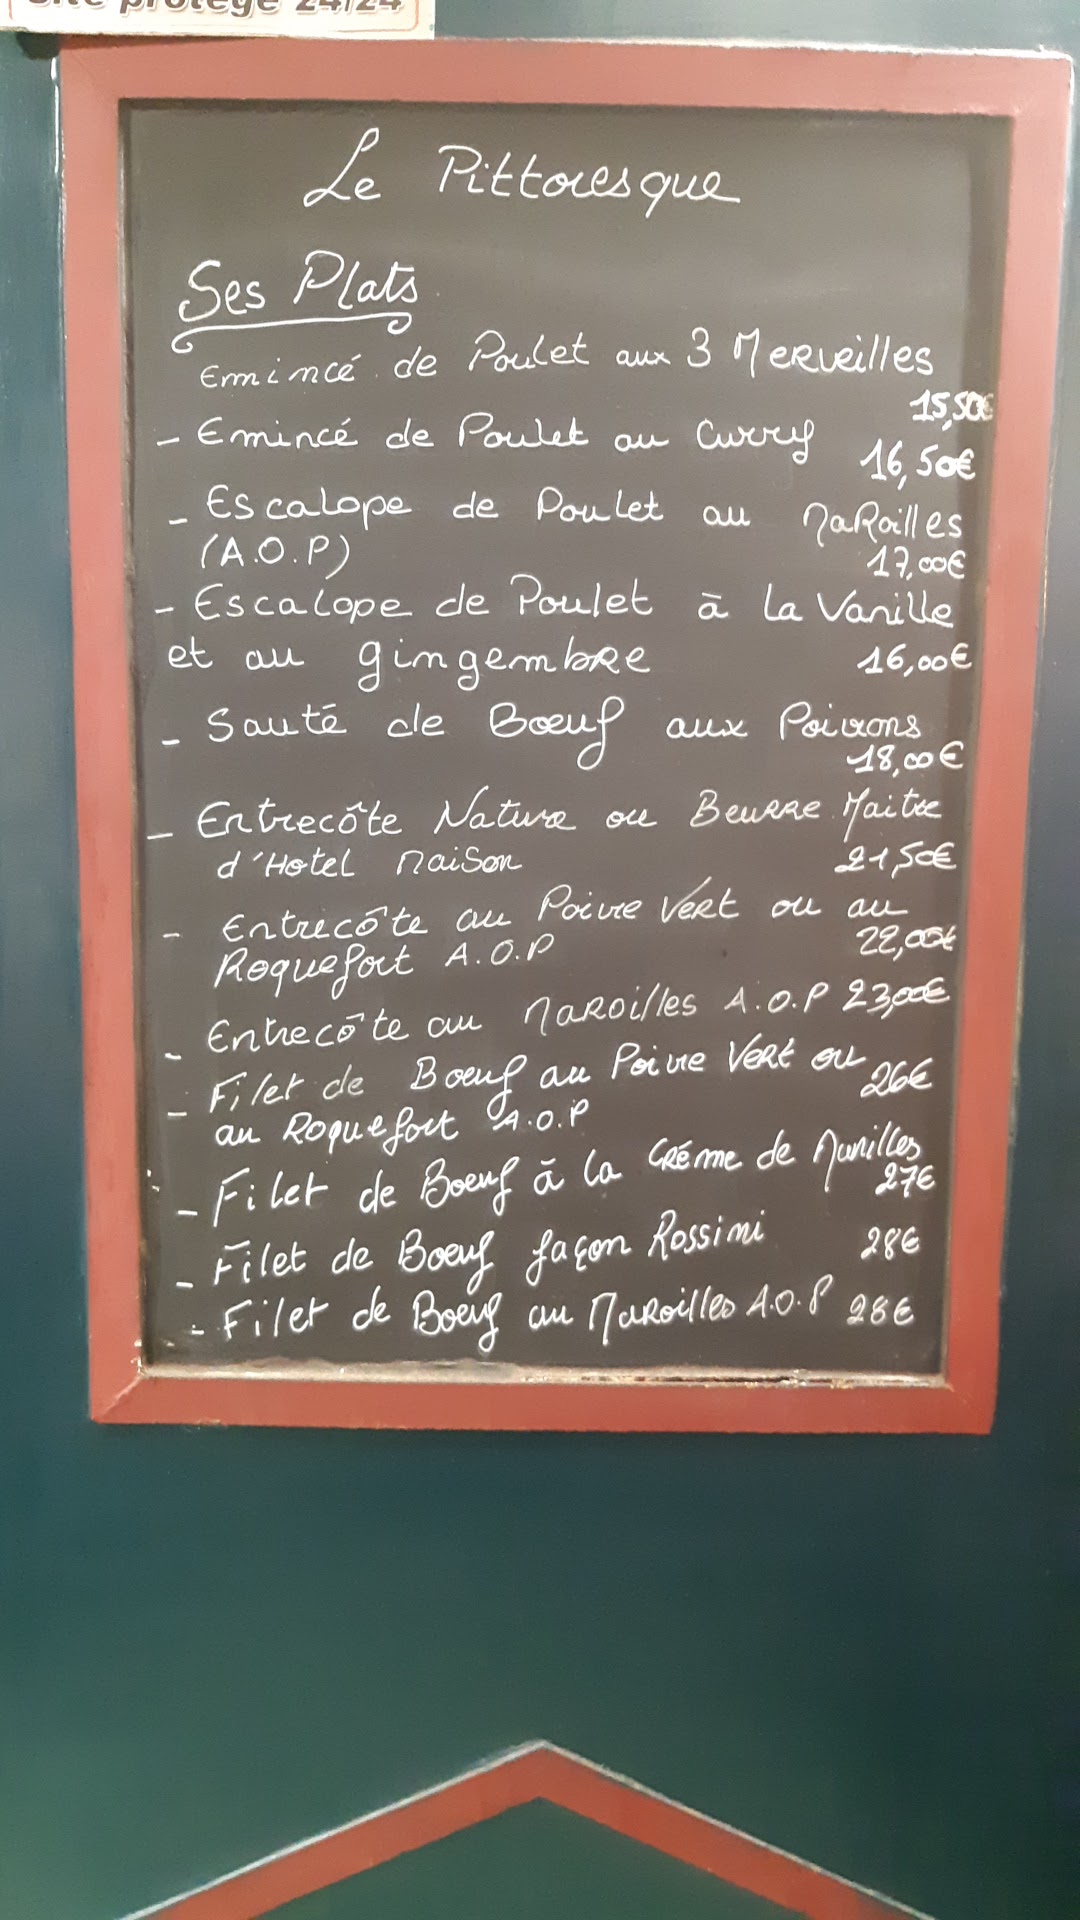 Site protégé 24/24
Le Pittoresque
Ses Plats
Emincé de Poulet aux 3 Merveilles
15,50€
- Emincé de Poulet au Curry 16,50€
- Escalope de Poulet au Maroilles
(A.O.P) 17,00€
- Escalope de Poulet à la Vanille
et au gingembre 16,00€
- Sauté de Boeuf aux Poivrons
18,00€
- Entrecôte Nature ou Beurre Maitre
d'Hotel Maison 21,50€
- Entrecôte au Poivre Vert ou au
Roquefort A.O.P 22,00€
- Entrecôte au Maroilles A.O.P 23,00€
- Filet de Boeuf au Poivre Vert ou 26€
au Roquefort A.O.P
- Filet de Boeuf à la Crême de Morilles
27€
- Filet de Boeuf façon Rossini 28€
- Filet de Boeuf au Maroilles A.O.P 28€